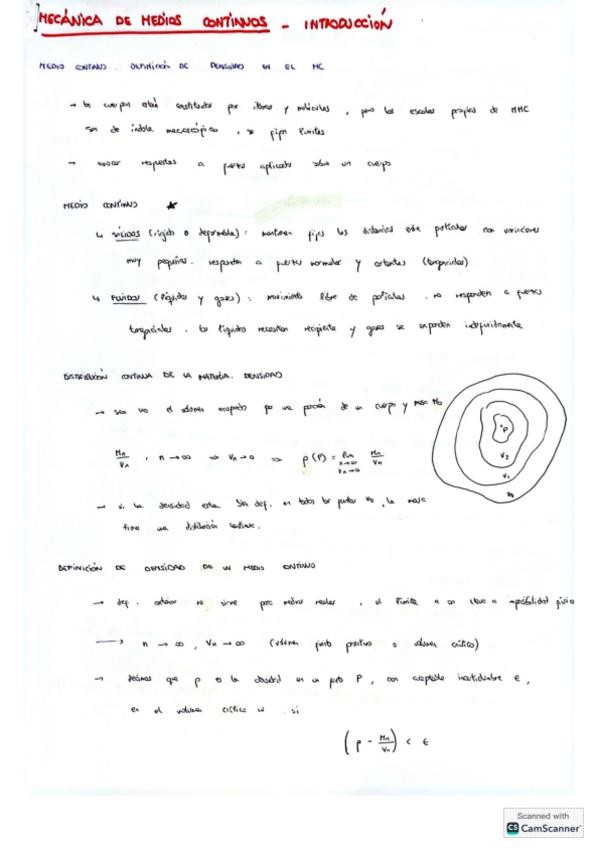 MECÁNICA DE MEDIOS CONTINUOS - INTRODUCCIÓN
MEDIO CONTINUO. DEFINICIÓN DE DENSIDAD EN EL MC
→ los cuerpos están constituidos por átomos y moléculas, pero las escalas propias de MMC
son de índole macroscópico, se fijan límites
→ conocer respuestas a fuerzas aplicadas sobre un cuerpo
MEDIO CONTINUO ★
↳ SÓLIDOS (rígido o deformable): mantienen fijas las distancias entre partículas con variaciones
muy pequeñas. responden a fuerzas normales y cortantes (tangenciales)
↳ FLUIDOS (líquidos y gases): movimiento libre de partículas. no responden a fuerzas
tangenciales. los líquidos necesitan recipiente y gases se expanden indefinidamente
DISTRIBUCIÓN CONTINUA DE LA MATERIA. DENSIDAD
→ sea V0 el volumen ocupado por una porción de un cuerpo y masa M0
Mn/Vn, n → ∞ ⇒ Vn → 0 ⇒ ρ(P) = lim n→∞ Vn→0 Mn/Vn
P
V2
V1
V0
→ si la densidad está bien def. en todos los puntos V0, la masa
tiene una distribución continua.
DEFINICIÓN DE DENSIDAD DE UN MEDIO CONTINUO
→ def. anterior no sirve para medios reales, el límite a 0 lleva a imposibilidad física
→ n → ∞, Vn → ∞ (volumen finito positivo o volumen crítico)
→ decimos que ρ es la densidad en un punto P, con aceptable incertidumbre ε,
en el volumen crítico w si
(ρ - Mn/Vn) < ε
Scanned with
CS CamScanner